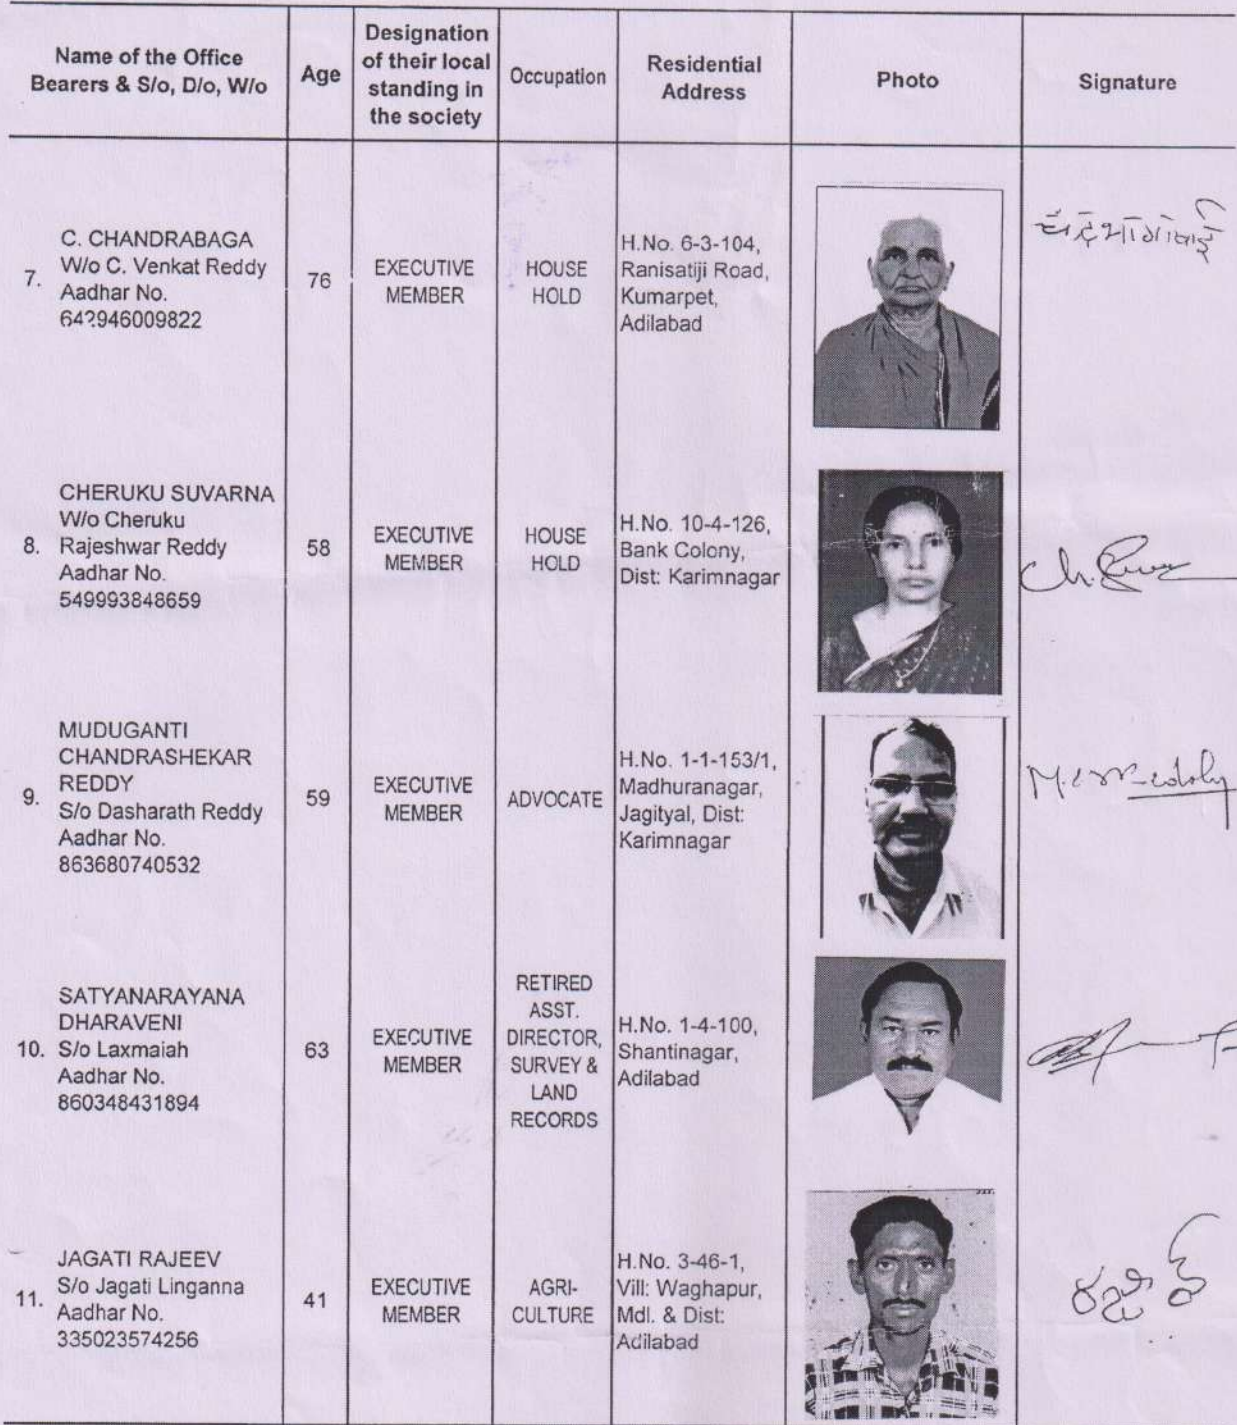 Name of the Office
Bearers & S/o, D/o, W/o
Age
Designation
of their local
standing in
the society
Occupation
Residential
Address
Photo
Signature
7.
C. CHANDRABAGA
W/o C. Venkat Reddy
Aadhar No.
76
EXECUTIVE
MEMBER
HOUSE
HOLD
H.No. 6-3-104,
Ranisatiji Road,
Kumarpet,
Adilabad
8.
CHERUKU SUVARNA
W/o Cheruku
Rajeshwar Reddy
Aadhar No.
549993848659
58
EXECUTIVE
MEMBER
HOUSE
HOLD
H.No. 10-4-126,
Bank Colony,
Dist: Karimnagar
9.
MUDUGANTI
CHANDRASHEKAR
REDDY
S/o Dasharath Reddy
Aadhar No.
863680740532
59
EXECUTIVE
MEMBER
ADVOCATE
H.No. 1-1-153/1,
Madhuranagar,
Jagityal, Dist:
Karimnagar
10.
SATYANARAYANA
DHARAVENI
S/o Laxmaiah
Aadhar No.
860348431894
63
EXECUTIVE
MEMBER
RETIRED
ASST.
DIRECTOR,
SURVEY &
LAND
RECORDS
H.No. 1-4-100,
Shantinagar,
Adilabad
11.
JAGATI RAJEEV
S/o Jagati Linganna
Aadhar No.
335023574256
41
EXECUTIVE
MEMBER
AGRI-
CULTURE
H.No. 3-46-1,
Vill: Waghapur,
Mdl. & Dist:
Adilabad